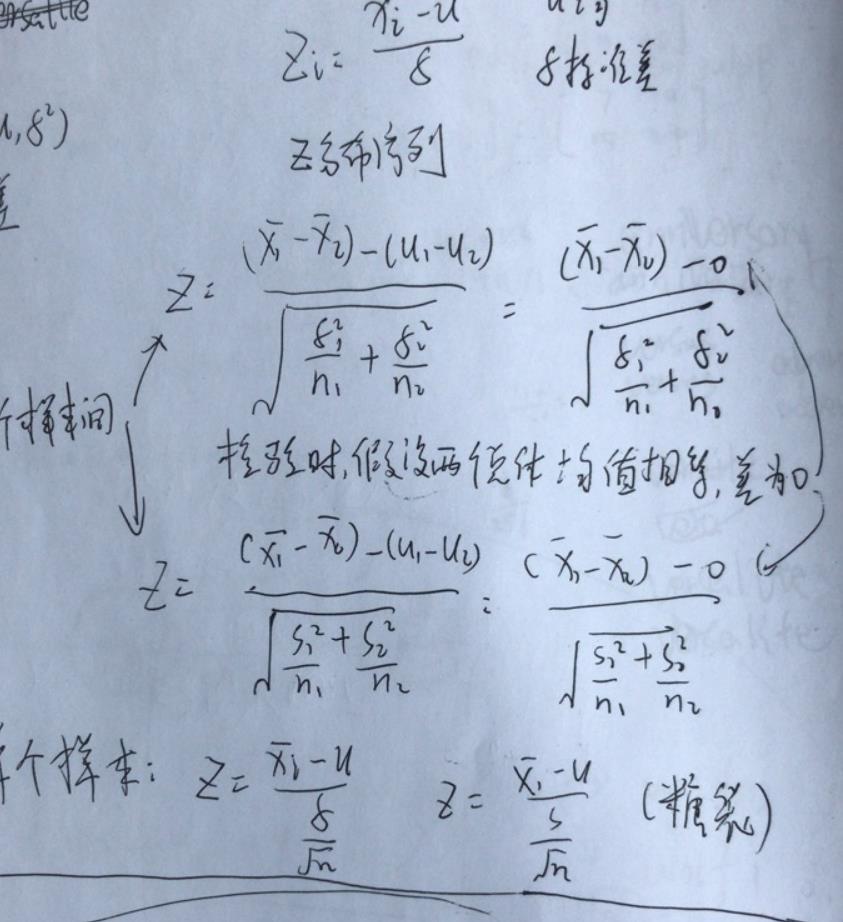 Zi = (xi - u) / δ
δ标准差
u, δ²)
差
Z分布序列
Z = ((x̄₁ - x̄₂) - (u₁ - u₂)) / √(δ₁²/n₁ + δ₂²/n₂) = ((x̄₁ - x̄₂) - 0) / √(δ₁²/n₁ + δ₂²/n₂)
个样本间
检验时,假设两总体均值相等,差为0
Z = ((x̄₁ - x̄₂) - (u₁ - u₂)) / √(s₁²/n₁ + s₂²/n₂) = ((x̄₁ - x̄₂) - 0) / √(s₁²/n₁ + s₂²/n₂)
个样本: Z = (x̄i - u) / (δ/√n) Z = (x̄₁ - u) / (s/√n)